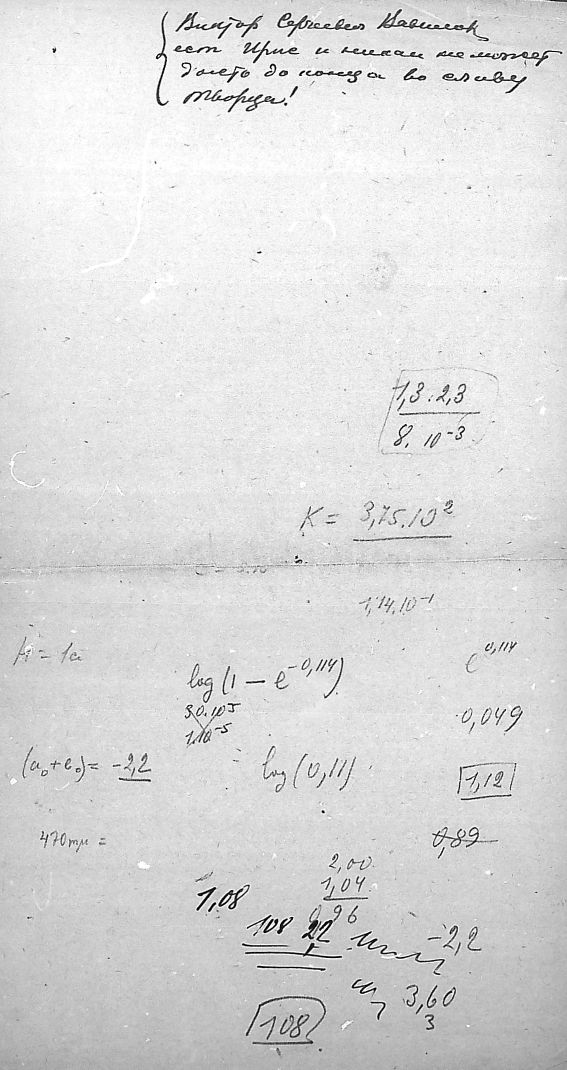 Виктор Сергеевич Вавилов
есть Ирис и никак не может
до конца во славу
творца!
1,3 · 2,3
8 · 10⁻³
K = 3,75 · 10²
1,14 · 10⁻¹
log(1 − e⁻⁰·¹¹⁴) e⁰·¹¹⁴
30 · 10⁵
1 · 10⁻⁵
0,049
(a₀ + e₀) = −2,2 log(0,11) 1,12
470mμ = 0,89
2,00
1,08 1,04
0,96
108 22 −2,2
3,60
3
108